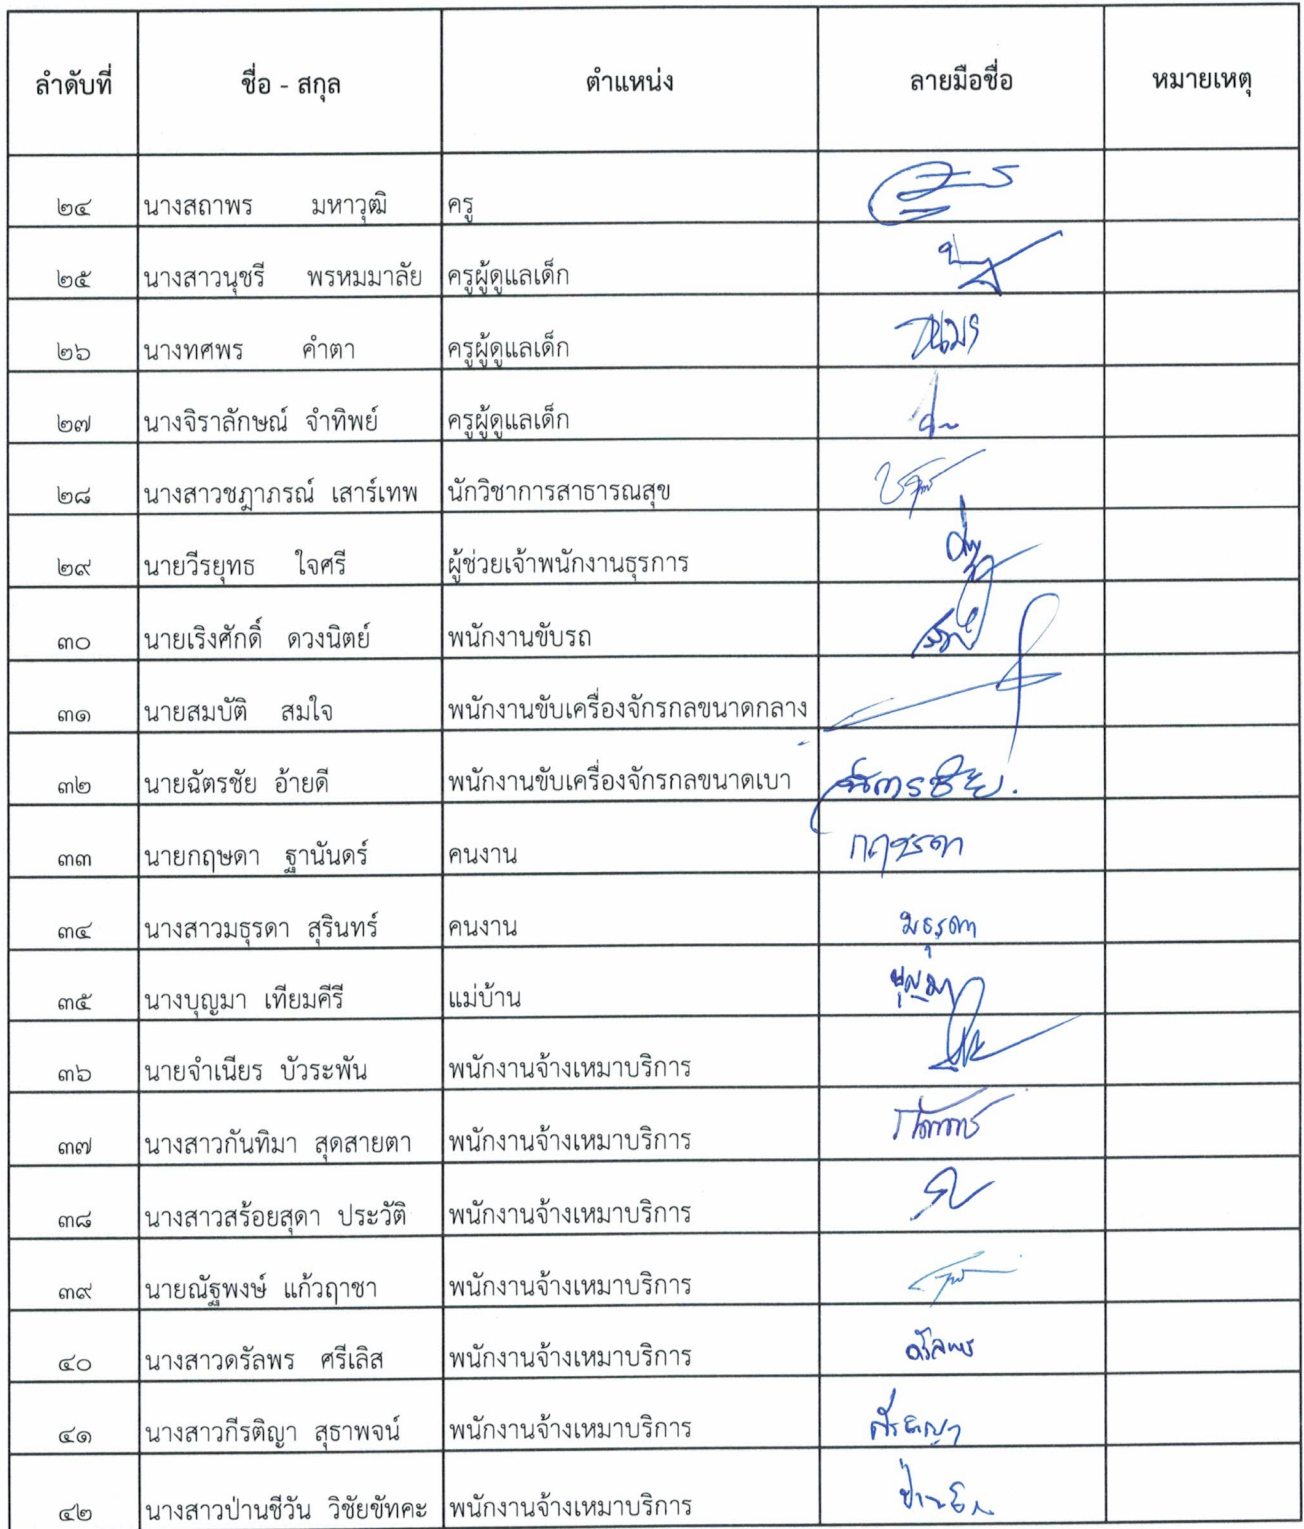 ลำดับที่ ชื่อ - สกุล ตำแหน่ง ลายมือชื่อ หมายเหตุ
๒๔ นางสถาพร มหาวุฒิ ครู
๒๕ นางสาวนุชรี พรหมมาลัย ครูผู้ดูแลเด็ก
๒๖ นางทศพร คำตา ครูผู้ดูแลเด็ก
๒๗ นางจิราลักษณ์ จำทิพย์ ครูผู้ดูแลเด็ก
๒๘ นางสาวชฎาภรณ์ เสาร์เทพ นักวิชาการสาธารณสุข
๒๙ นายวีรยุทธ ใจศรี ผู้ช่วยเจ้าพนักงานธุรการ
๓๐ นายเริงศักดิ์ ดวงนิตย์ พนักงานขับรถ
๓๑ นายสมบัติ สมใจ พนักงานขับเครื่องจักรกลขนาดกลาง
๓๒ นายฉัตรชัย อ้ายดี พนักงานขับเครื่องจักรกลขนาดเบา ฉัตรชัย.
๓๓ นายกฤษดา ฐานันดร์ คนงาน กฤษดา
๓๔ นางสาวมธุรดา สุรินทร์ คนงาน มธุรดา
๓๕ นางบุญมา เทียมคีรี แม่บ้าน บุญมา
๓๖ นายจำเนียร บัวระพัน พนักงานจ้างเหมาบริการ
๓๗ นางสาวกันทิมา สุดสายตา พนักงานจ้างเหมาบริการ
๓๘ นางสาวสร้อยสุดา ประวัติ พนักงานจ้างเหมาบริการ
๓๙ นายณัฐพงษ์ แก้วฤาชา พนักงานจ้างเหมาบริการ
๔๐ นางสาวดรัลพร ศรีเลิส พนักงานจ้างเหมาบริการ ดรัลพร
๔๑ นางสาวกีรติญา สุธาพจน์ พนักงานจ้างเหมาบริการ กีรติญา
๔๒ นางสาวป่านชีวัน วิชัยขัทคะ พนักงานจ้างเหมาบริการ